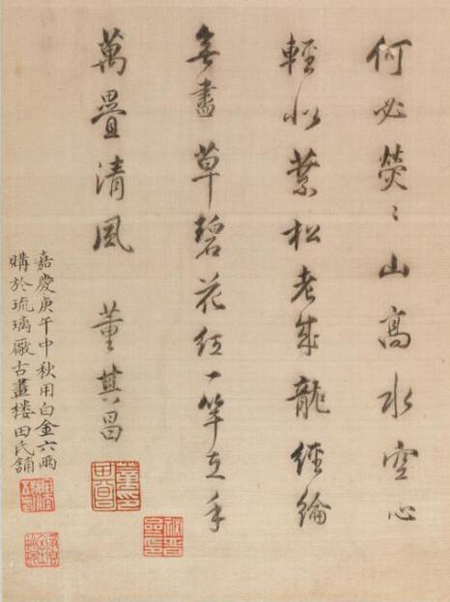 何必熒〻山高水空心
輕似葉松老成龍經綸
無盡草碧花紅一竿在手
萬疊清風 董其昌
嘉慶庚午中秋用白金六兩
購於琉璃厰古畫楼田氏舖